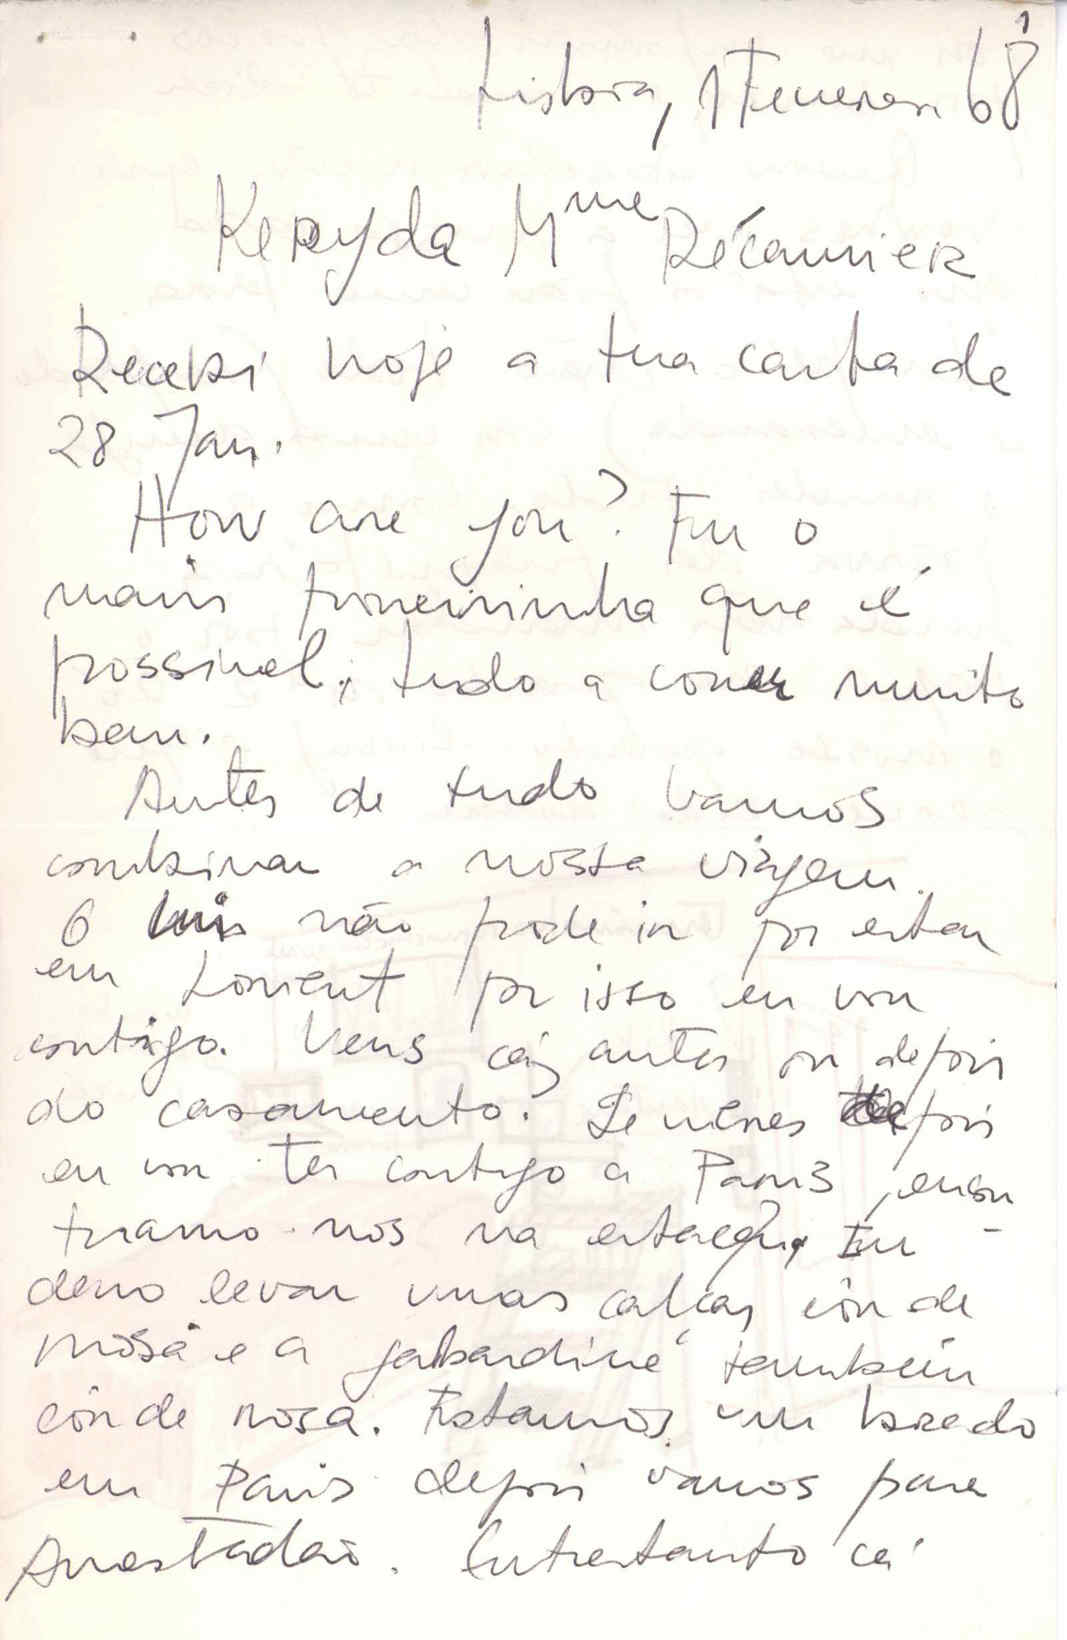 1
Lisboa, 1 Fevereiro 68
Keryda Mme Récamier
Recebi hoje a tua carta de
28 Jan.
How are you? Eu o
mais porreirinha que é
possivel; tudo a correr muito
bem.
Antes de tudo vamos
combinar a nossa viagem.
O Luis não pode ir por estar
em Lorient por isso eu vou
contigo. Vens cá antes ou depois
do casamento? Se vieres depois
eu vou ter contigo a Paris, encon
tramo-nos na estação. Eu
devo levar umas calças côr de
rosa e a gabardine também
côr de rosa. Estamos um bocado
em Paris depois vamos para
Amesterdão. Entretanto cá